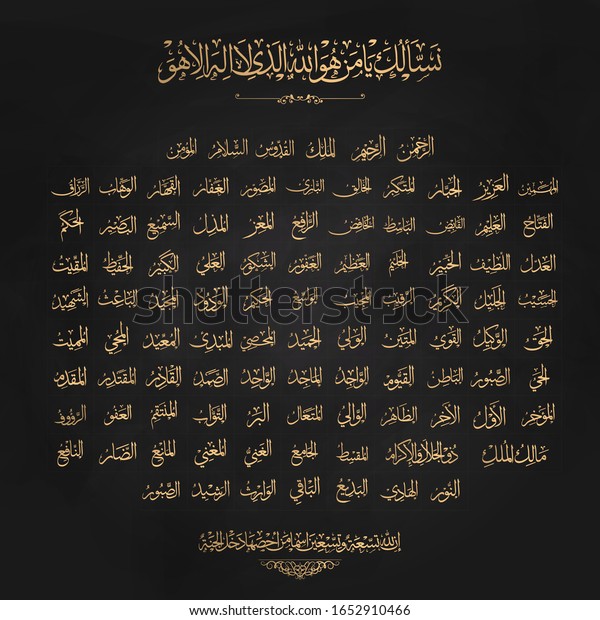 نسألك يا من هو الله الذي لا إله إلا هو
الرحمن الرحيم الملك القدوس السلام المؤمن
المهيمن العزيز الجبار المتكبر الخالق البارئ المصور الغفار القهار الوهاب الرزاق
الفتاح العليم القابض الباسط الخافض الرافع المعز المذل السميع البصير الحكم
العدل اللطيف الخبير الحليم العظيم الغفور الشكور العلي الكبير الحفيظ المقيت
الحسيب الجليل الكريم الرقيب المجيب الواسع الحكيم الودود المجيد الباعث الشهيد
الحق الوكيل القوي المتين الولي الحميد المحصي المبدئ المعيد المحيي المميت
الحي الصبور الباطن القيوم الواجد الماجد الواحد الصمد القادر المقتدر المقدم
المؤخر الأول الآخر الظاهر الوالي المتعال البر التواب المنتقم العفو الرؤوف
مالك الملك ذو الجلال والإكرام المقسط الجامع الغني المغني المانع الضار النافع
النور الهادي البديع الباقي الوارث الرشيد الصبور
إن لله تسعة وتسعين اسما من أحصاها دخل الجنة
shutterstock
shutterstock.com · 1652910466